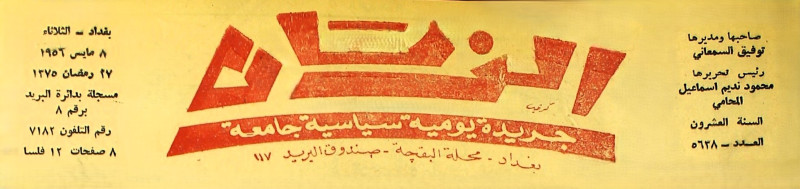 صاحبها ومديرها
توفيق السمعاني
رئيس تحريرها
محمود نديم اسماعيل
المحامي
السنة العشرون
العدد - ٥٦٣٨
الزمان
جريدة يومية سياسية جامعة
بغداد - محلة البقچة - صندوق البريد ١١٧
بغداد - الثلاثاء
٨ مايس ١٩٥٦
٢٧ رمضان ١٣٧٥
مسجلة بدائرة البريد
برقم ٨
رقم التلفون ٧١٨٢
٨ صفحات ١٢ فلسا